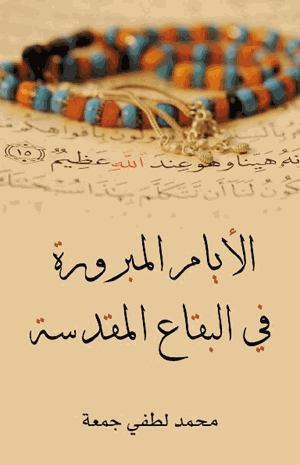 هَيِّنًا وَهُوَ عِندَ اللَّهِ عَظِيمٌ ١٥
لَنَا أَن نَّتَكَلَّمَ بِهَذَا
الأيام المبرورة
في البقاع المقدسة
محمد لطفي جمعة